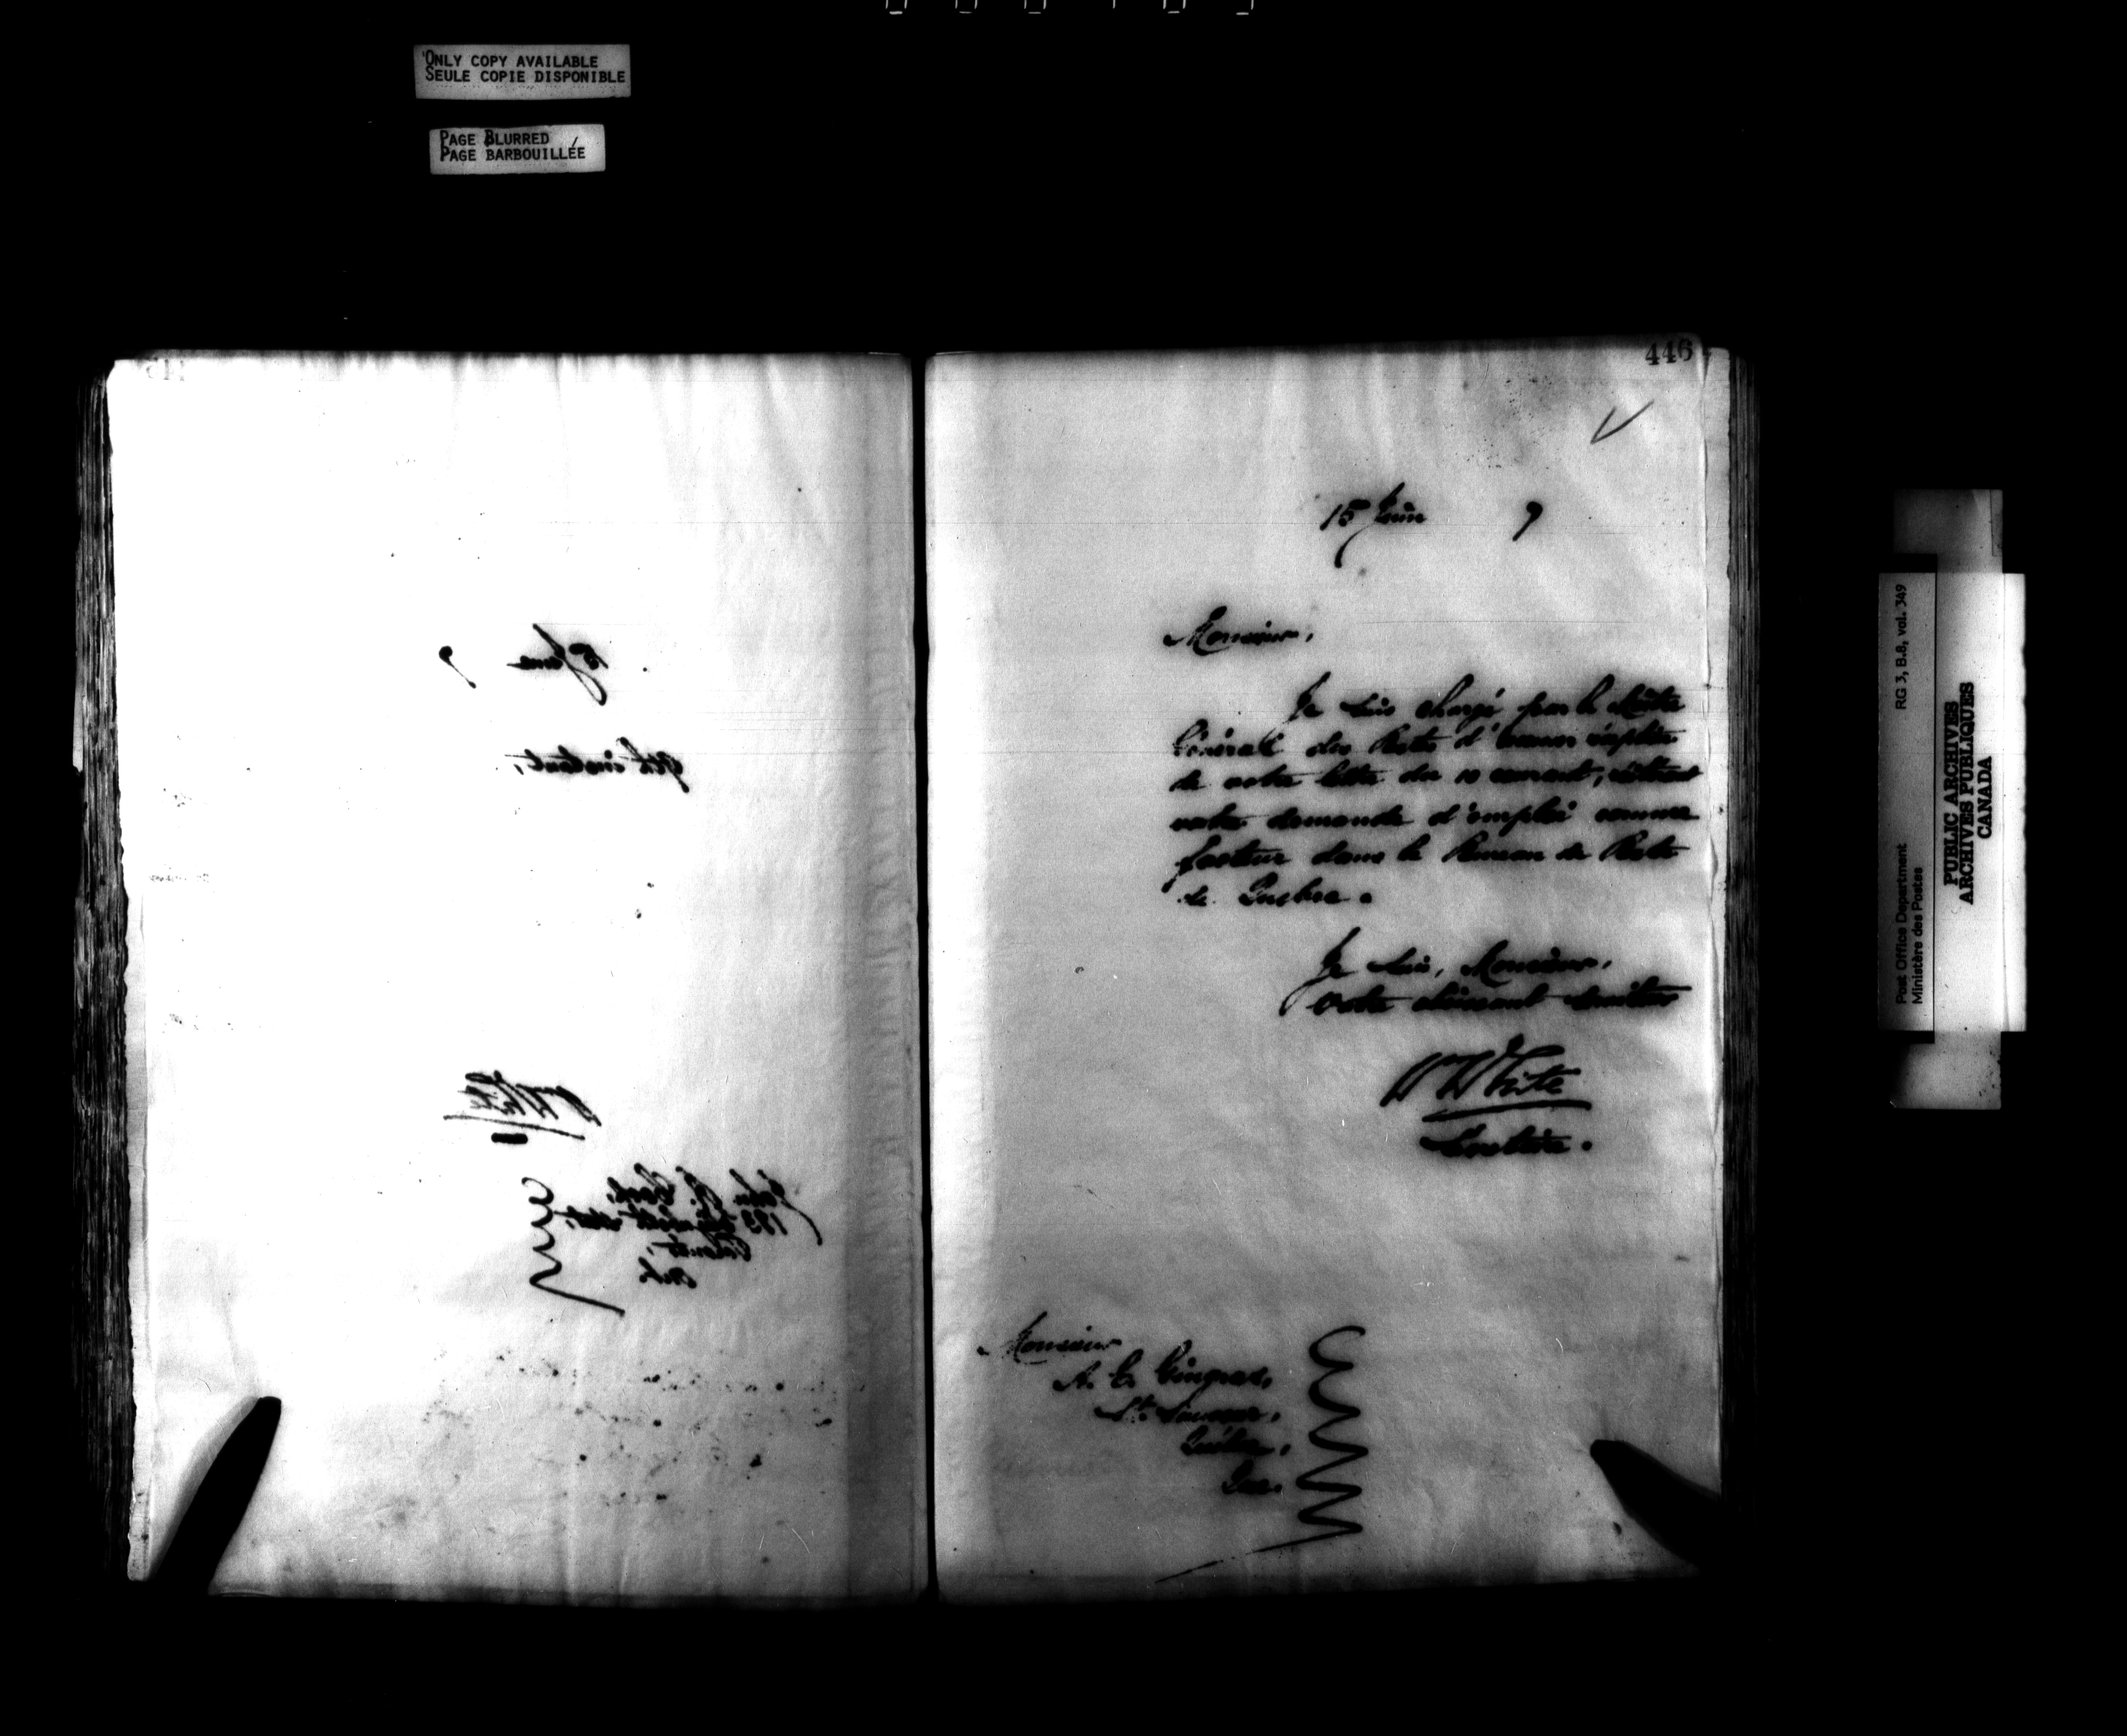 ONLY COPY AVAILABLE
SEULE COPIE DISPONIBLE
PAGE BLURRED
PAGE BARBOUILLÉE
15 June 9
9th instant,
WWhite
John
133 Elizabeth Str.
Toronto,
Ont.
446
15 Juin 9
Monsieur,
Je suis chargé par le Maître
Général des Postes d'accuser réception
de votre lettre du 10 courant, réitérant
votre demande d'emploi comme
facteur dans le Bureau de Poste
de Quebec.
Je suis, Monsieur,
Votre obéissant serviteur
WWhite
Secrétaire.
Monsieur
A. E. Gingras,
St. Sauveur,
Québec,
Que.
Post Office Department RG 3, B.8, vol. 349
Ministère des Postes
PUBLIC ARCHIVES
ARCHIVES PUBLIQUES
CANADA